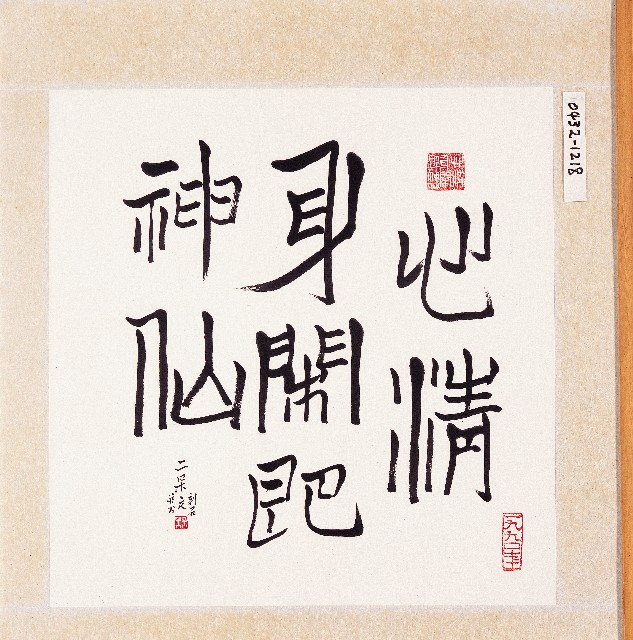 0432-1218
心清
身閑即
神仙
二呆